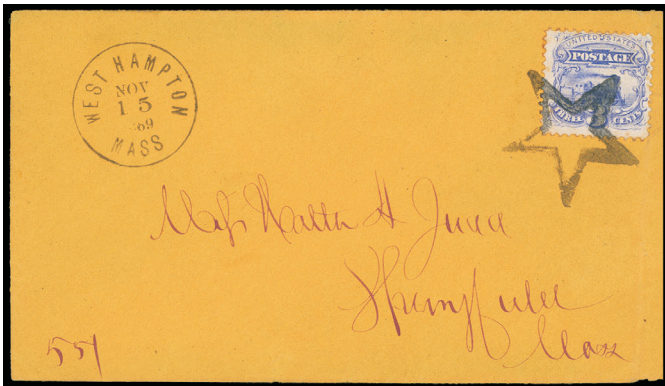 WEST HAMPTON
NOV
15
69
MASS
UNITED STATES
POSTAGE
THREE CENTS
3
H
Springfield
Mass
551